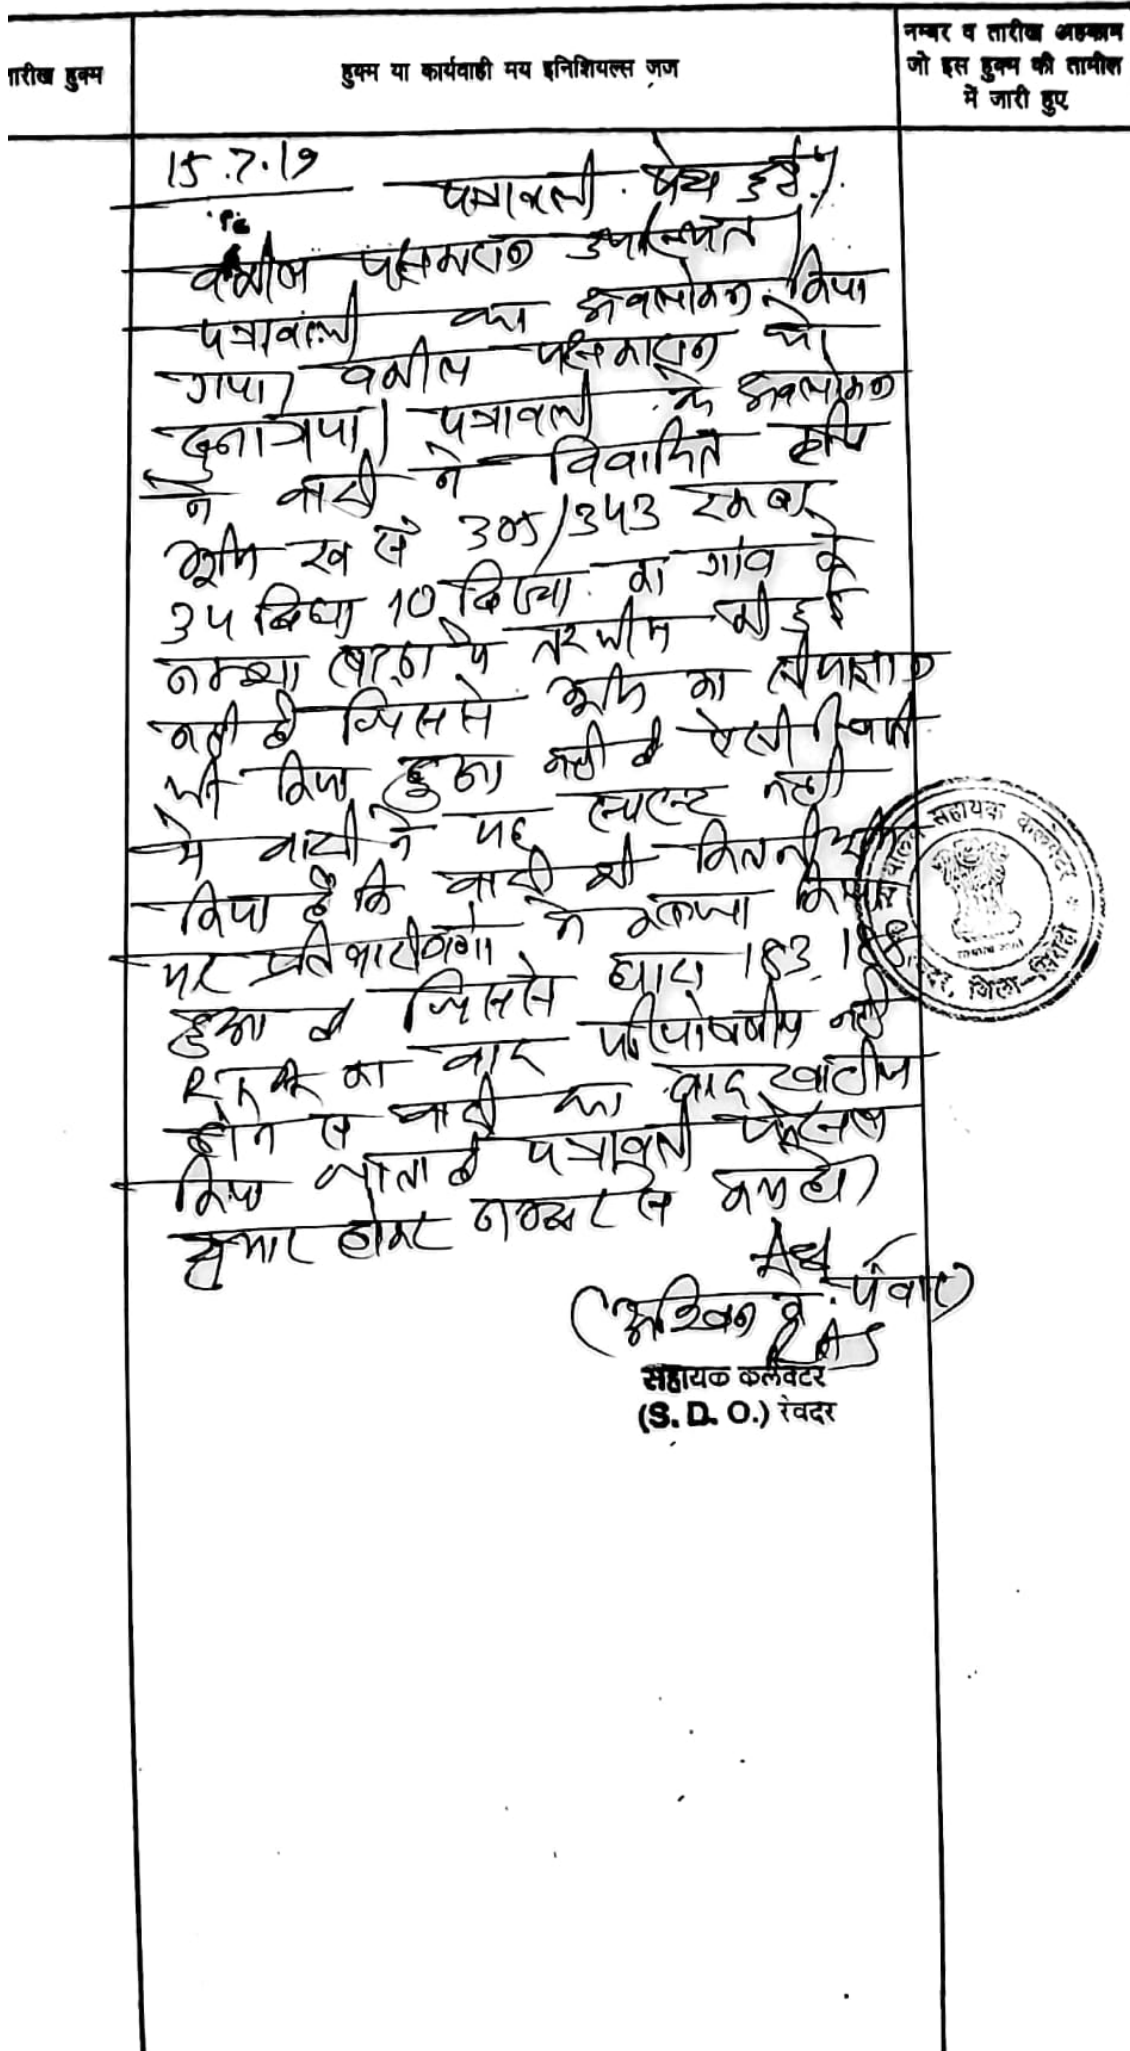 तारीख हुक्म
हुक्म या कार्यवाही मय इनिशियल्स जज
नम्बर व तारीख अहकाम
जो इस हुक्म की तामील
में जारी हुए
15.7.19
पत्रावली पेश हुई।
वकील पक्षकारान उपस्थित।
पत्रावली का अवलोकन किया
गया। वकील पक्षकारान को
सुना गया। पत्रावली के अवलोकन
से वादी ने विवादित कृषि
भूमि ख से 305/343 रकबा
34 बिघा 10 बिस्वा का गांव के
नक्शा लट्ठा में तरमीम की हुई
नहीं है जिससे भूमि का सीमाज्ञान
भी किया हुआ नहीं है ऐसी स्थिति
में वादी ने यह स्पष्ट नहीं
किया है कि वादी की कितनी भूमि
पर प्रतिवादीगण ने कब्जा किया
हुआ है जिससे धारा 183, 188
का वाद परिपोषणीय नहीं
होने से वादी का वाद खारीज
किया जाता है पत्रावली फैसल
शुमार होकर नम्बर से कम हो।
पंवार)
सहायक कलेक्टर
(S. D. O.) रेवदर
सहायक कलेक्टर
जिला-सिरोही